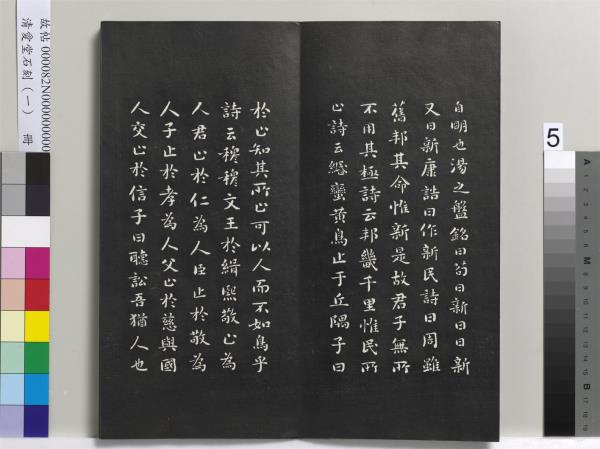 自明也湯之盤銘曰苟日新日日新
又日新康誥曰作新民詩曰周雖
舊邦其命惟新是故君子無所
不用其極詩云邦畿千里惟民所
止詩云緡蠻黃鳥止于丘隅子曰
於止知其所止可以人而不如鳥乎
詩云穆穆文王於緝熙敬止為
人君止於仁為人臣止於敬為
人子止於孝為人父止於慈與國
人交止於信子曰聽訟吾猶人也
故帖 000082N000000000
清愛堂石刻（一） 冊
5
A
M
B